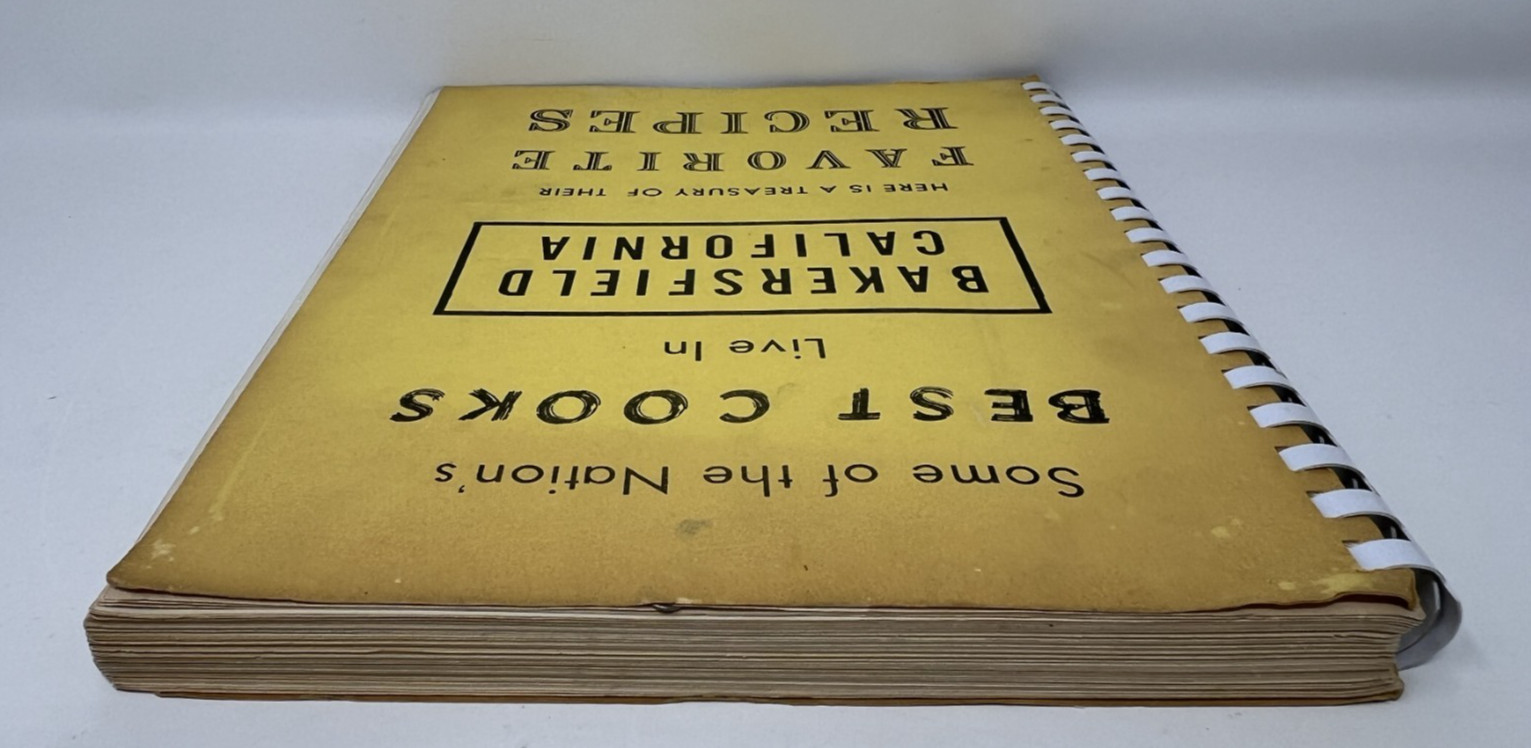 Some of the Nation's
BEST COOKS
Live In
BAKERSFIELD
CALIFORNIA
HERE IS A TREASURY OF THEIR
FAVORITE
RECIPES